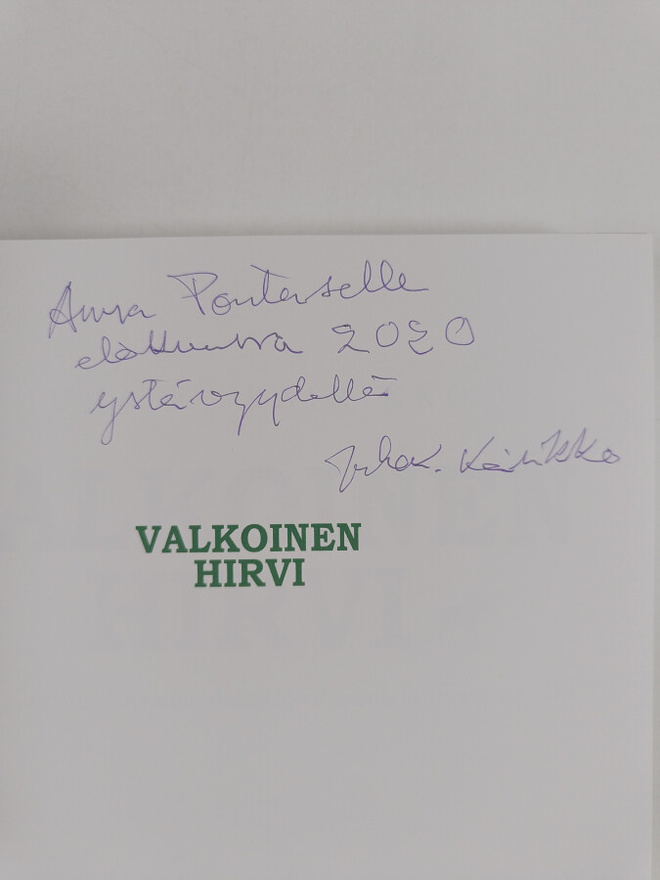 Anna Pontaselle
elokuussa 2020
ystävyydellä
Juha K. Kärikko
VALKOINEN
HIRVI